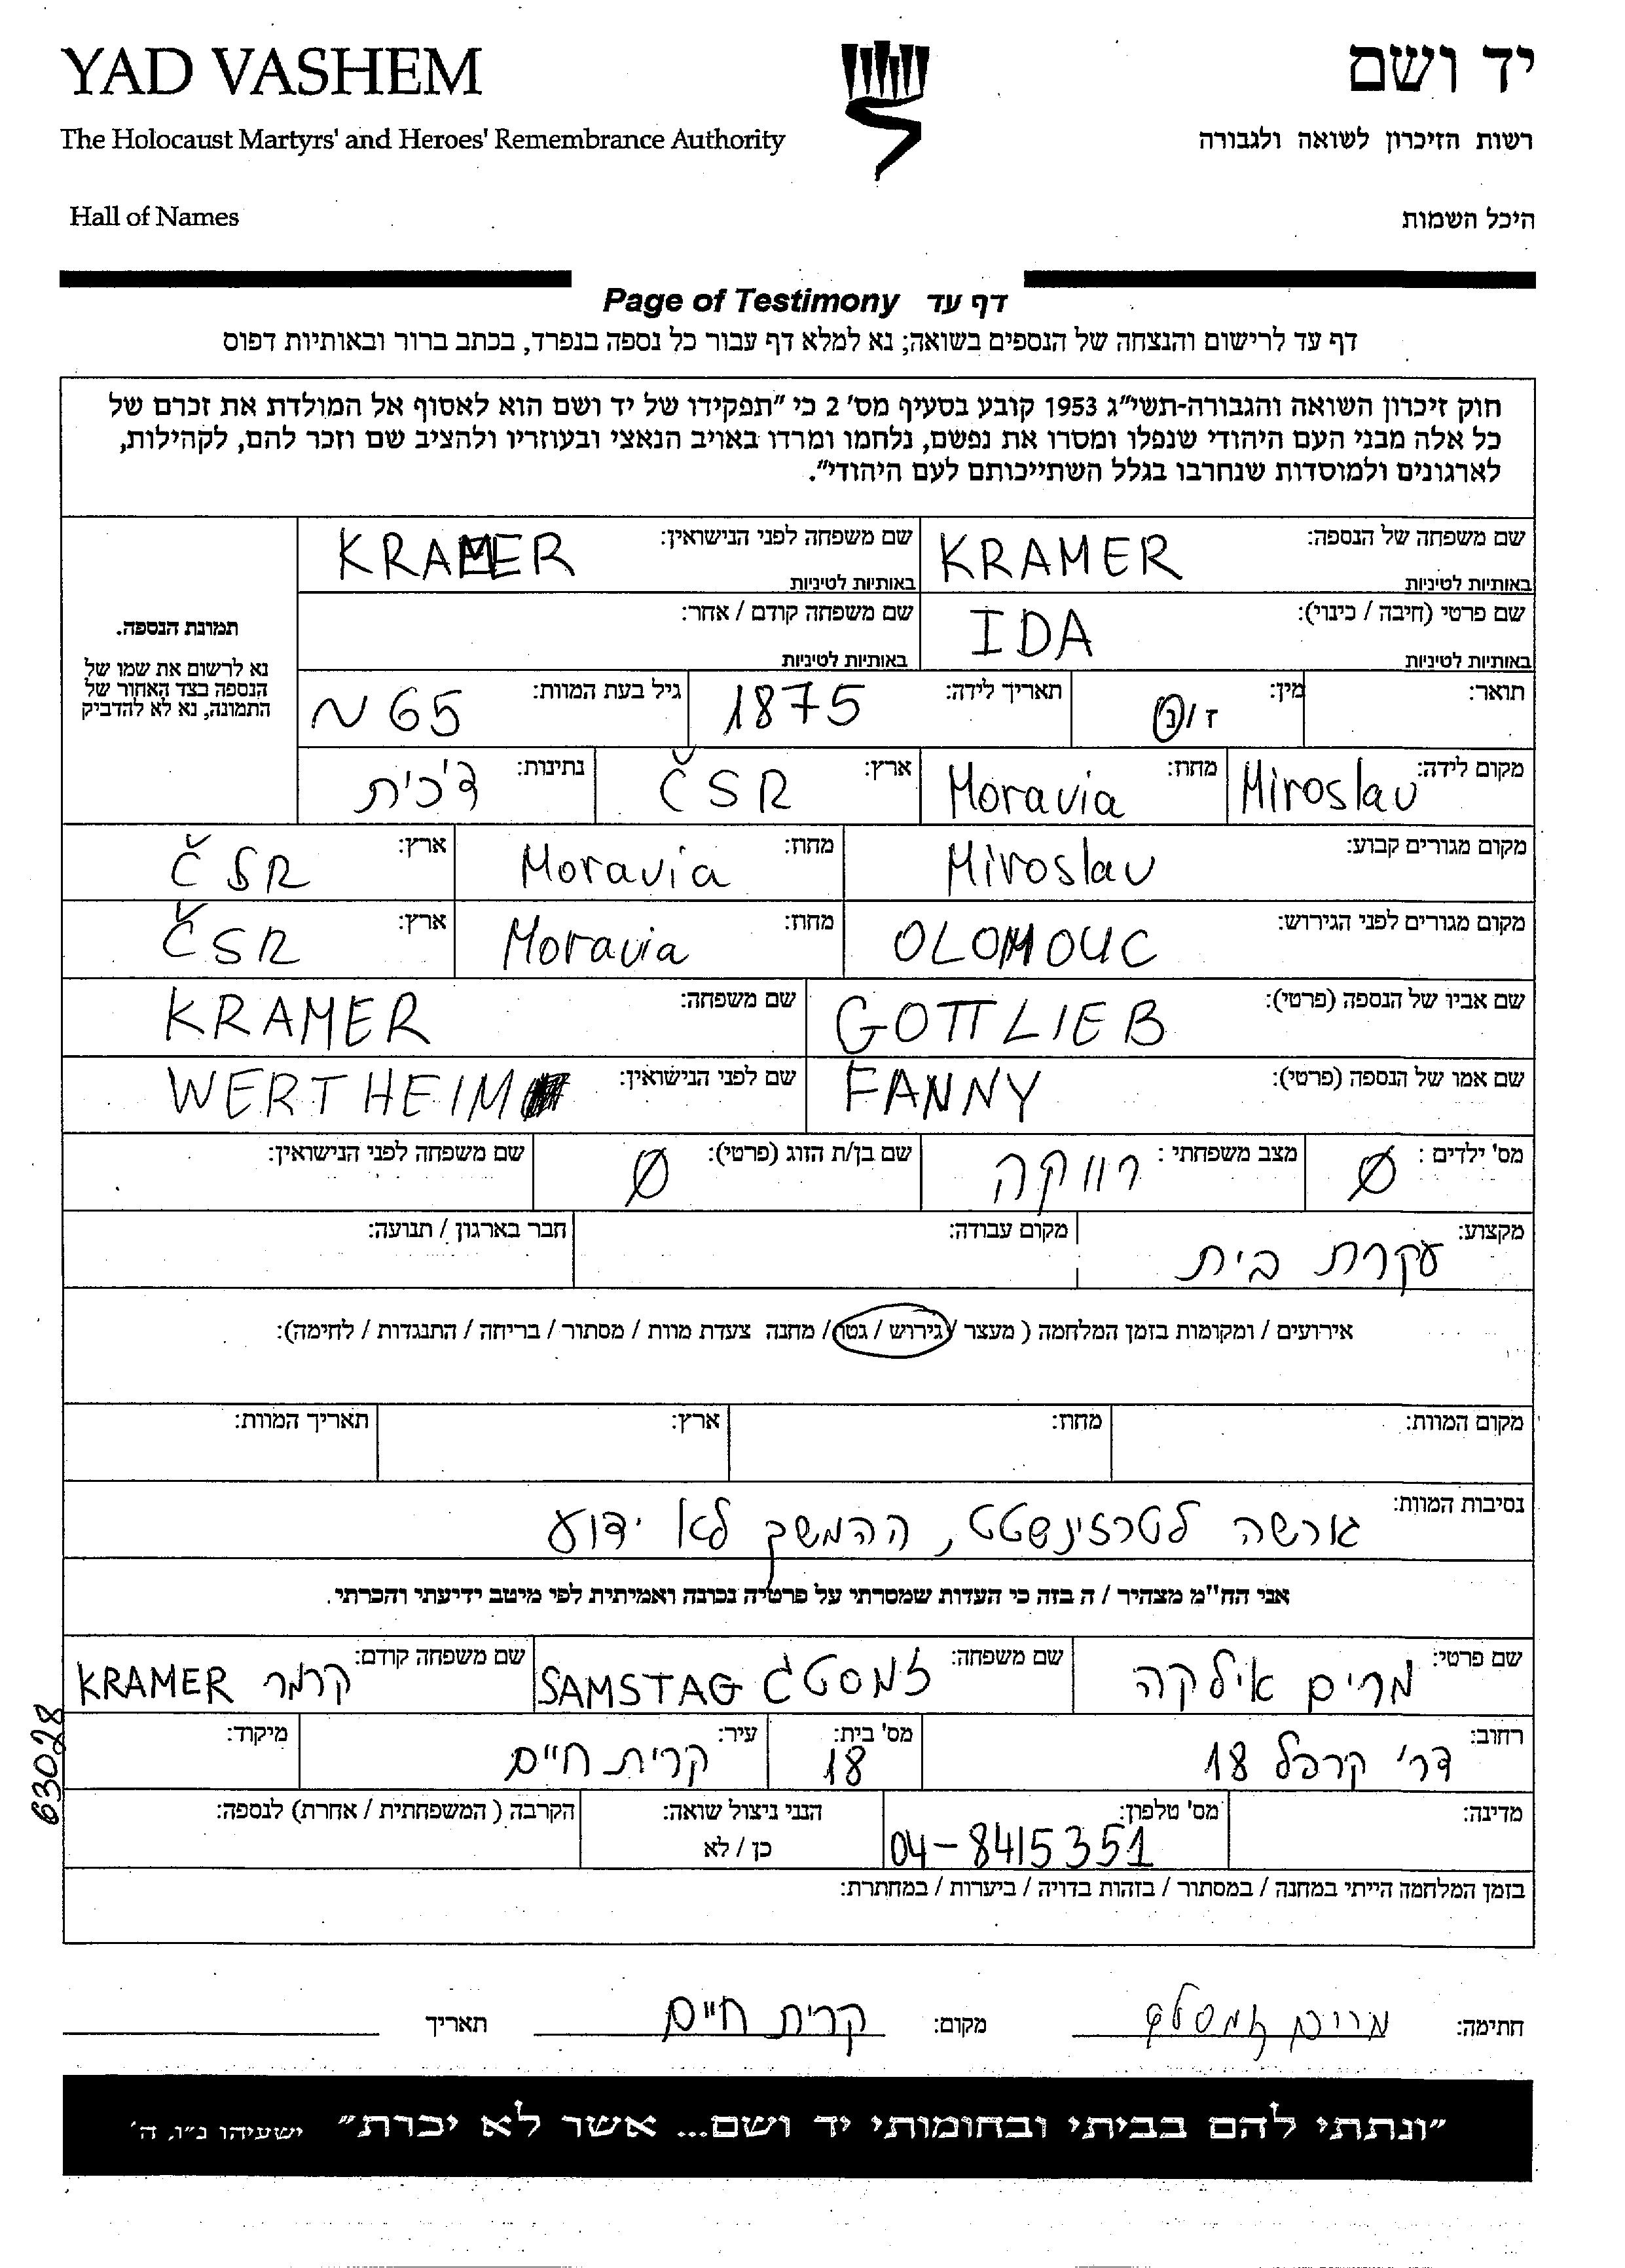 YAD VASHEM
יד ושם
The Holocaust Martyrs' and Heroes' Remembrance Authority
רשות הזיכרון לשואה ולגבורה
Hall of Names
היכל השמות
Page of Testimony דף עד
דף עד לרישום והנצחה של הנספים בשואה; נא למלא דף עבור כל נספה בנפרד, בכתב ברור ובאותיות דפוס
חוק זיכרון השואה והגבורה-תשי"ג 1953 קובע בסעיף מס' 2 כי "תפקידו של יד ושם הוא לאסוף אל המולדת את זכרם של
כל אלה מבני העם היהודי שנפלו ומסרו את נפשם, נלחמו ומרדו באויב הנאצי ובעוזריו ולהציב שם וזכר להם, לקהילות,
לארגונים ולמוסדות שנחרבו בגלל השתייכותם לעם היהודי".
שם משפחה של הנספה: KRAMER שם משפחה לפני הנישואין: KRAMER
באותיות לטיניות באותיות לטיניות
שם פרטי (חיבה / כינוי): IDA שם משפחה קודם / אחר:
באותיות לטיניות באותיות לטיניות
תמונת הנספה.
נא לרשום את שמו של
הנספה בצד האחור של
התמונה, נא לא להדביק
תואר: מין: ז / נ תאריך לידה: 1875 גיל בעת המוות: ~ 65
מקום לידה: Miroslav מחוז: Moravia ארץ: ČSR נתינות: צ'כית
מקום מגורים קבוע: Miroslav מחוז: Moravia ארץ: ČSR
מקום מגורים לפני הגירוש: OLOMOUC מחוז: Moravia ארץ: ČSR
שם אביו של הנספה (פרטי): GOTTLIEB שם משפחה: KRAMER
שם אמו של הנספה (פרטי): FANNY שם לפני הנישואין: WERTHEIM
מס' ילדים : Ø מצב משפחתי : רווקה שם בן/ת הזוג (פרטי): Ø שם משפחה לפני הנישואין:
מקצוע: עקרת בית מקום עבודה: חבר בארגון / תנועה:
אירועים / ומקומות בזמן המלחמה ( מעצר / גירוש / גטו / מחנה צעדת מוות / מסתור / בריחה / התנגדות / לחימה):
מקום המוות: מחוז: ארץ: תאריך המוות:
נסיבות המוות: גורשה לטרזינשטט, ההמשך לא ידוע
אני הח"מ מצהיר / ה בזה כי העדות שמסרתי על פרטיה נכונה ואמיתית לפי מיטב ידיעתי והכרתי.
שם פרטי: מרים אילקה שם משפחה: זמסטג SAMSTAG שם משפחה קודם: קרמר KRAMER
רחוב: דר' קרפל 18 מס' בית: 18 עיר: קרית חיים מיקוד:
63028
מדינה: מס' טלפון: 04-8415351 הנני ניצול שואה: כן / לא הקרבה ( המשפחתית / אחרת) לנספה:
בזמן המלחמה הייתי במחנה / במסתור / בזהות בדויה / ביערות / במחתרת:
חתימה: מרים זמסטג מקום: קרית חיים תאריך
"ונתתי להם בביתי ובחומותי יד ושם... אשר לא יכרת" ישעיהו נ"ו, ה'